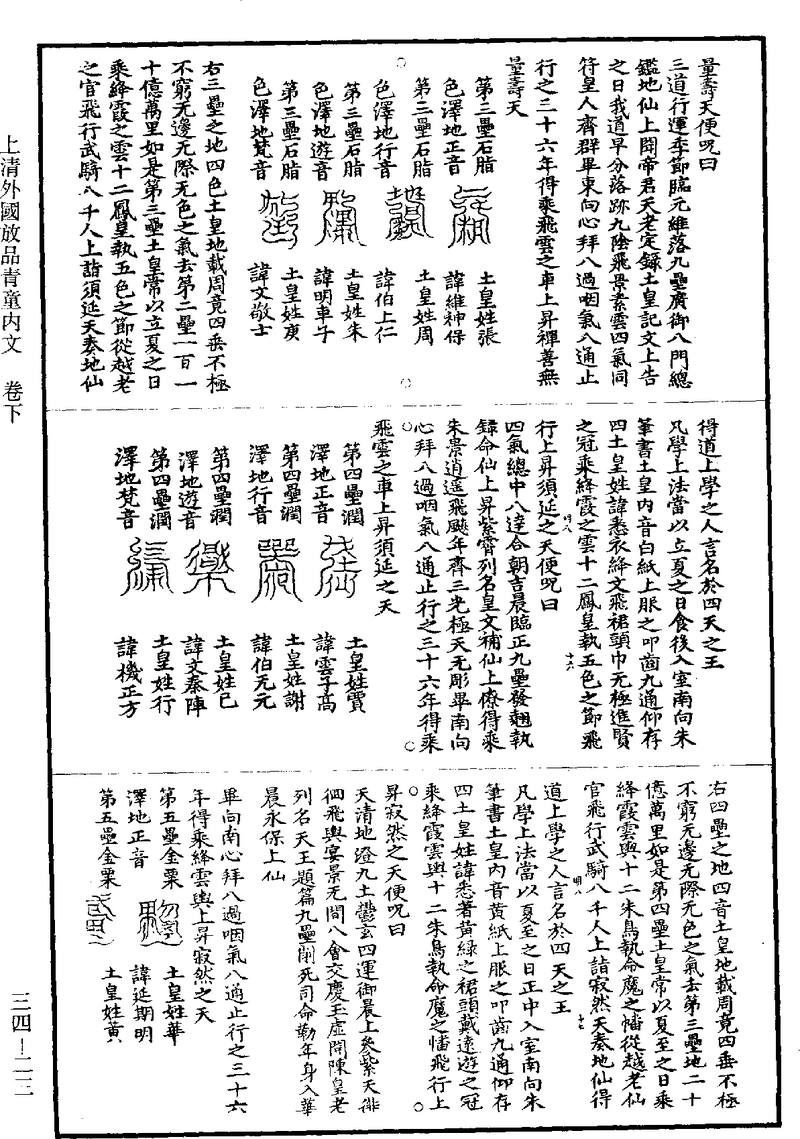 上清外國放品青童內文　卷下
三四—二三
量壽天便呪曰
三道行運季節臨元維落九壘廣御八門總
鑑地仙上闗帝君天老定錄土皇記文上告
之日我道早分落跡九陰飛景素雲四氣同
符皇人齊群畢東向心拜八過咽氣八通止
行之三十六年得乘飛雲之車上昇禪善無
量壽天
第三壘石脂
色澤地正音
土皇姓張
諱維神保
第三壘石脂
色澤地行音
土皇姓周
諱伯上仁
第三壘石脂
色澤地遊音
土皇姓朱
諱明車子
第三壘石脂
色澤地梵音
土皇姓庚
諱文敬士
右三壘之地四色土皇地載周竟四垂不極
不窮无邊无際无色之氣去第二壘一百一
十億萬里如是第三壘土皇常以立夏之日
乘絳霞之雲十二鳳皇執五色之節從越老
之官飛行武騎八千人上詣須延天奏地仙
得道上學之人言名於四天之王
凡學上法當以立夏之日食後入室南向朱
筆書土皇内音白紙上服之叩齒九通仰存
四土皇姓諱悉衣絳文飛裙頭巾无極進賢
之冠乘絳霞之雲十二鳳皇執五色之節飛
行上昇須延之天便呪曰
四氣總中八達合朝吉晨臨正九壘發翹執
錄命仙上昇紫霄列名皇文補仙上僚得乘
朱景逍遥飛飇年齊三光極天无彫畢南向
心拜八過咽氣八通止行之三十六年得乘
飛雲之車上昇須延之天
第四壘潤
澤地正音
土皇姓賈
諱雲子高
第四壘潤
澤地行音
土皇姓謝
諱伯无元
第四壘潤
澤地遊音
土皇姓已
諱文秦陣
第四壘潤
澤地梵音
土皇姓行
諱機正方
右四壘之地四音土皇地載周竟四垂不極
不窮无邊无際无色之氣去第三壘地二十
億萬里如是第四壘土皇常以夏至之日乘
絳霞雲輿十二朱鳥執命魔之幡從越老仙
官飛行武騎八千人上詣寂然天奏地仙得
道上學之人言名於四天之王
凡學上法當以夏至之日正中入室南向朱
筆書土皇内音黃紙上服之叩齒九通仰存
四土皇姓諱悉著黃綠之裙頭戴遠遊之冠
乘絳霞雲輿十二朱鳥執命魔之幡飛行上
昇寂然之天便呪曰
天清地澄九土鬱玄四運御晨上參紫天徘
徊飛輿宴景无間八會交慶王虛問陳皇老
列名天王題篇九壘削死司命勒年身入華
晨永保上仙
畢向南心拜八過咽氣八通止行之三十六
年得乘絳雲輿上昇寂然之天
第五壘金粟
澤地正音
土皇姓華
諱延期明
第五壘金粟
土皇姓黃